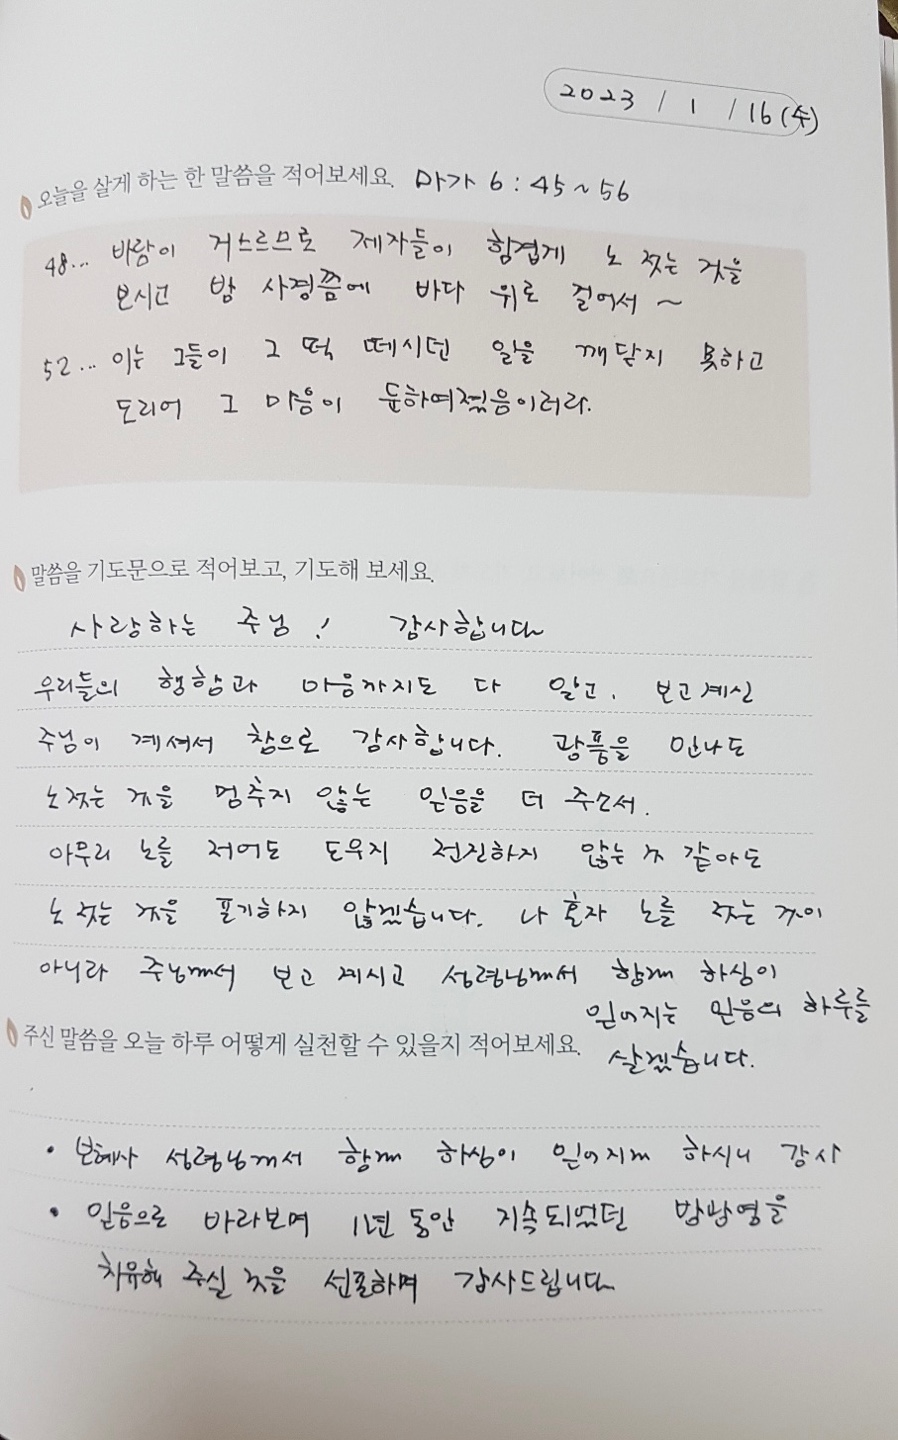 2023 / 1 / 16 (수)
오늘을 살게 하는 한 말씀을 적어보세요. 마가 6 : 45 ~ 56
48... 바람이 거스르므로 제자들이 힘겹게 노 젓는 것을
보시고 밤 사경쯤에 바다 위로 걸어서 ~
52... 이는 그들이 그 떡 떼시던 일을 깨닫지 못하고
도리어 그 마음이 둔하여졌음이러라.
말씀을 기도문으로 적어보고, 기도해 보세요.
사랑하는 주님! 감사합니다
우리들의 행함과 마음까지도 다 알고, 보고 계신
주님이 계셔서 참으로 감사합니다. 광풍을 만나도
노 젓는 것을 멈추지 않는 믿음을 더 주소서.
아무리 노를 저어도 도우지 전진하지 않는 것 같아도
노 젓는 것을 포기하지 않겠습니다. 나 혼자 노를 젓는 것이
아니라 주님께서 보고 계시고 성령님께서 함께 하심이
믿어지는 믿음의 하루를
살겠습니다.
주신 말씀을 오늘 하루 어떻게 실천할 수 있을지 적어보세요.
• 보혜사 성령님께서 함께 하심이 믿어지게 하시니 감사
• 믿음으로 바라보며 1년 동안 지속되었던 을
치유해 주실 것을 선포하며 감사드립니다